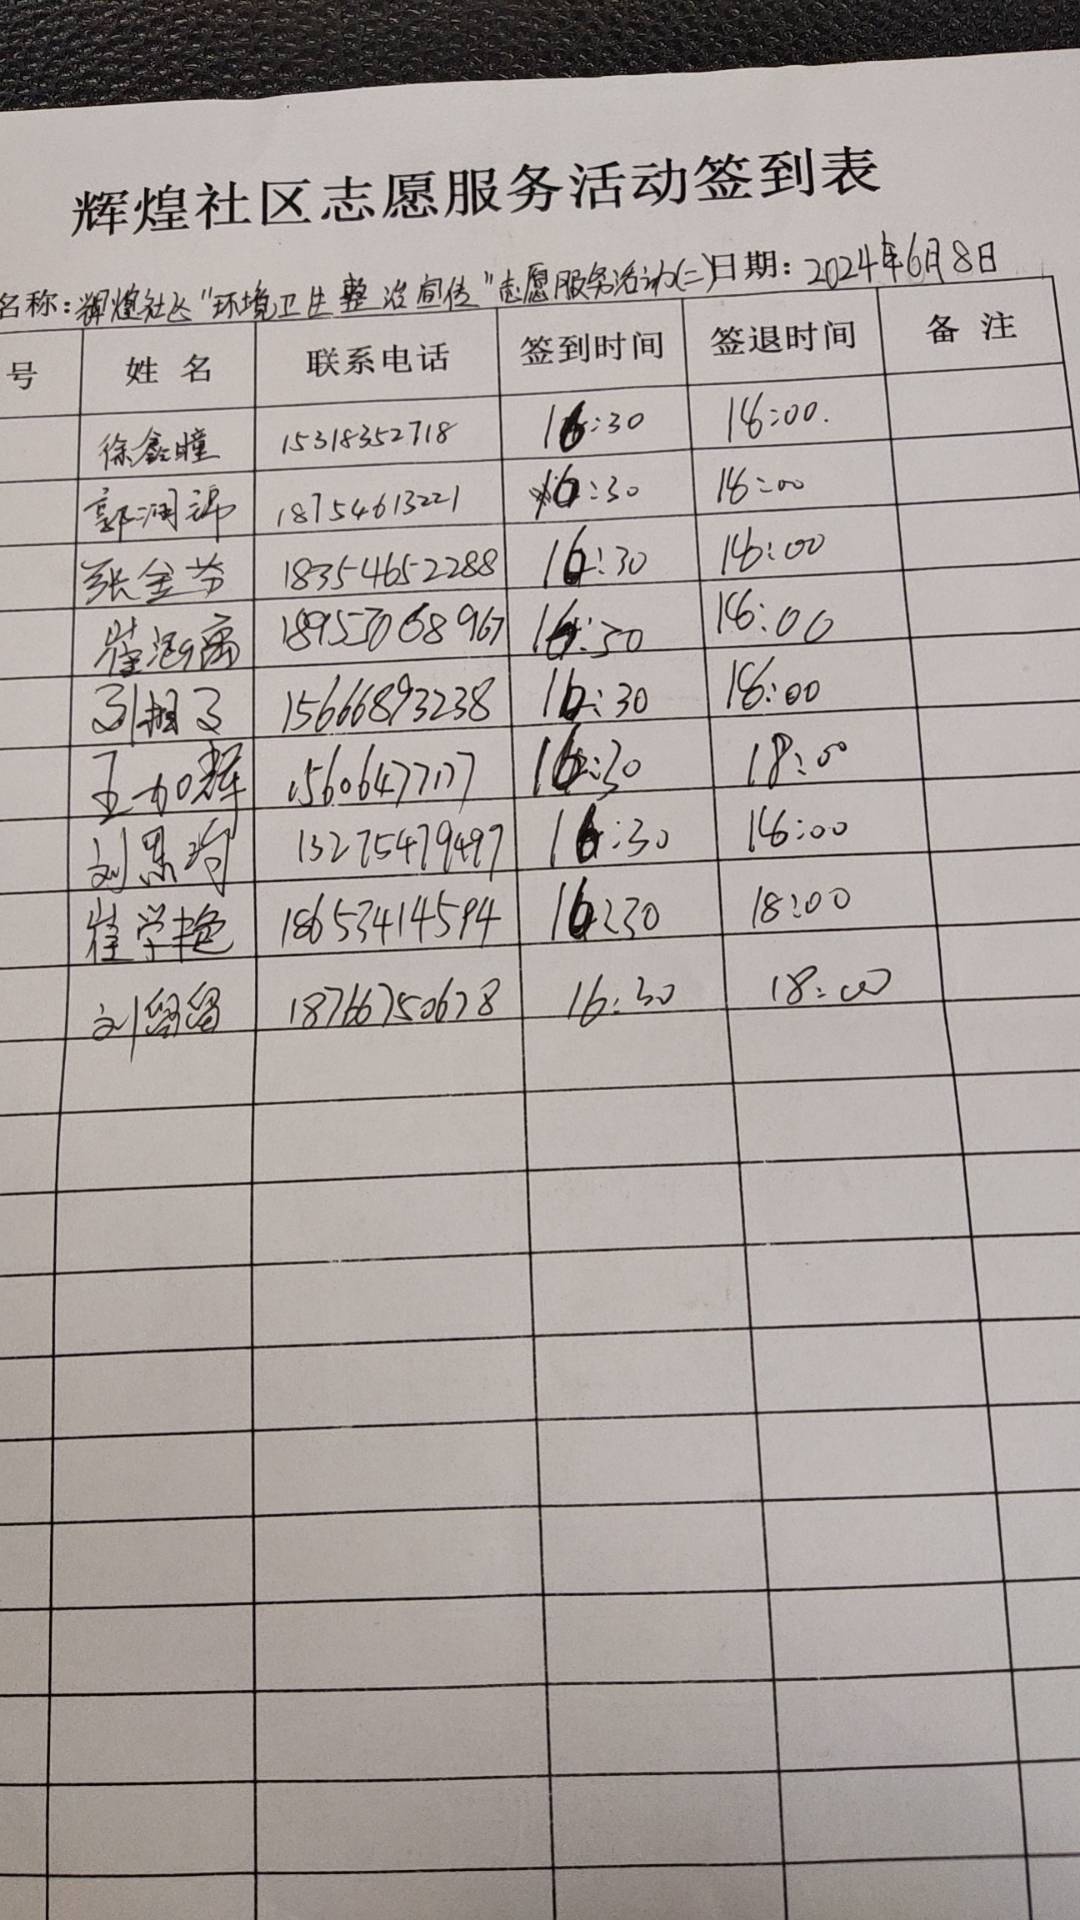 辉煌社区志愿服务活动签到表
名称：辉煌社区“环境卫生整治宣传”志愿服务活动(二)日期：2024年6月8日
号 姓名 联系电话 签到时间 签退时间 备注
徐鑫瞳 15318352718 16:30 18:00.
郭润 18754613221 16:30 18:00
张金芬 18354652288 16:30 18:00
崔 16:30 18:00
15666893238 16:30 18:00
王加辉 15606477177 16:30 18:00
刘思 13275479497 16:30 18:00
崔学艳 18653414594 16:30 18:00
刘留留 18766750678 16:30 18:00